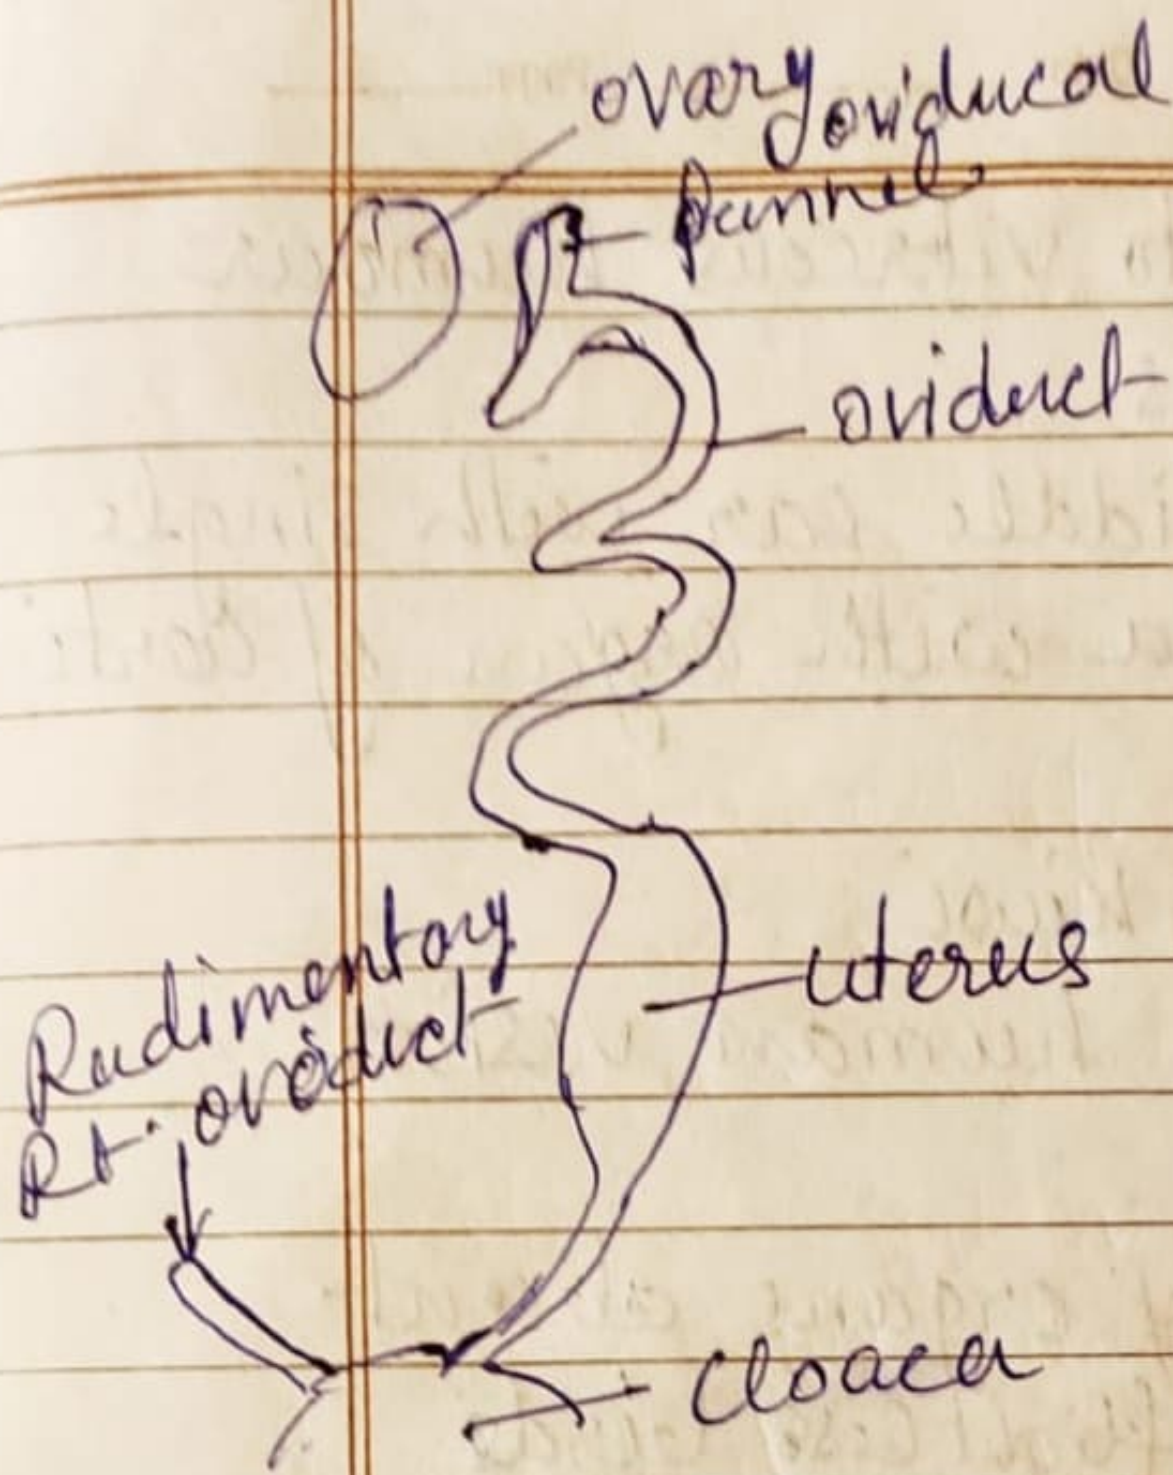 ovary
oviducal
funnel
oviduct
uterus
Rudimentary
Rt. oviduct
cloaca